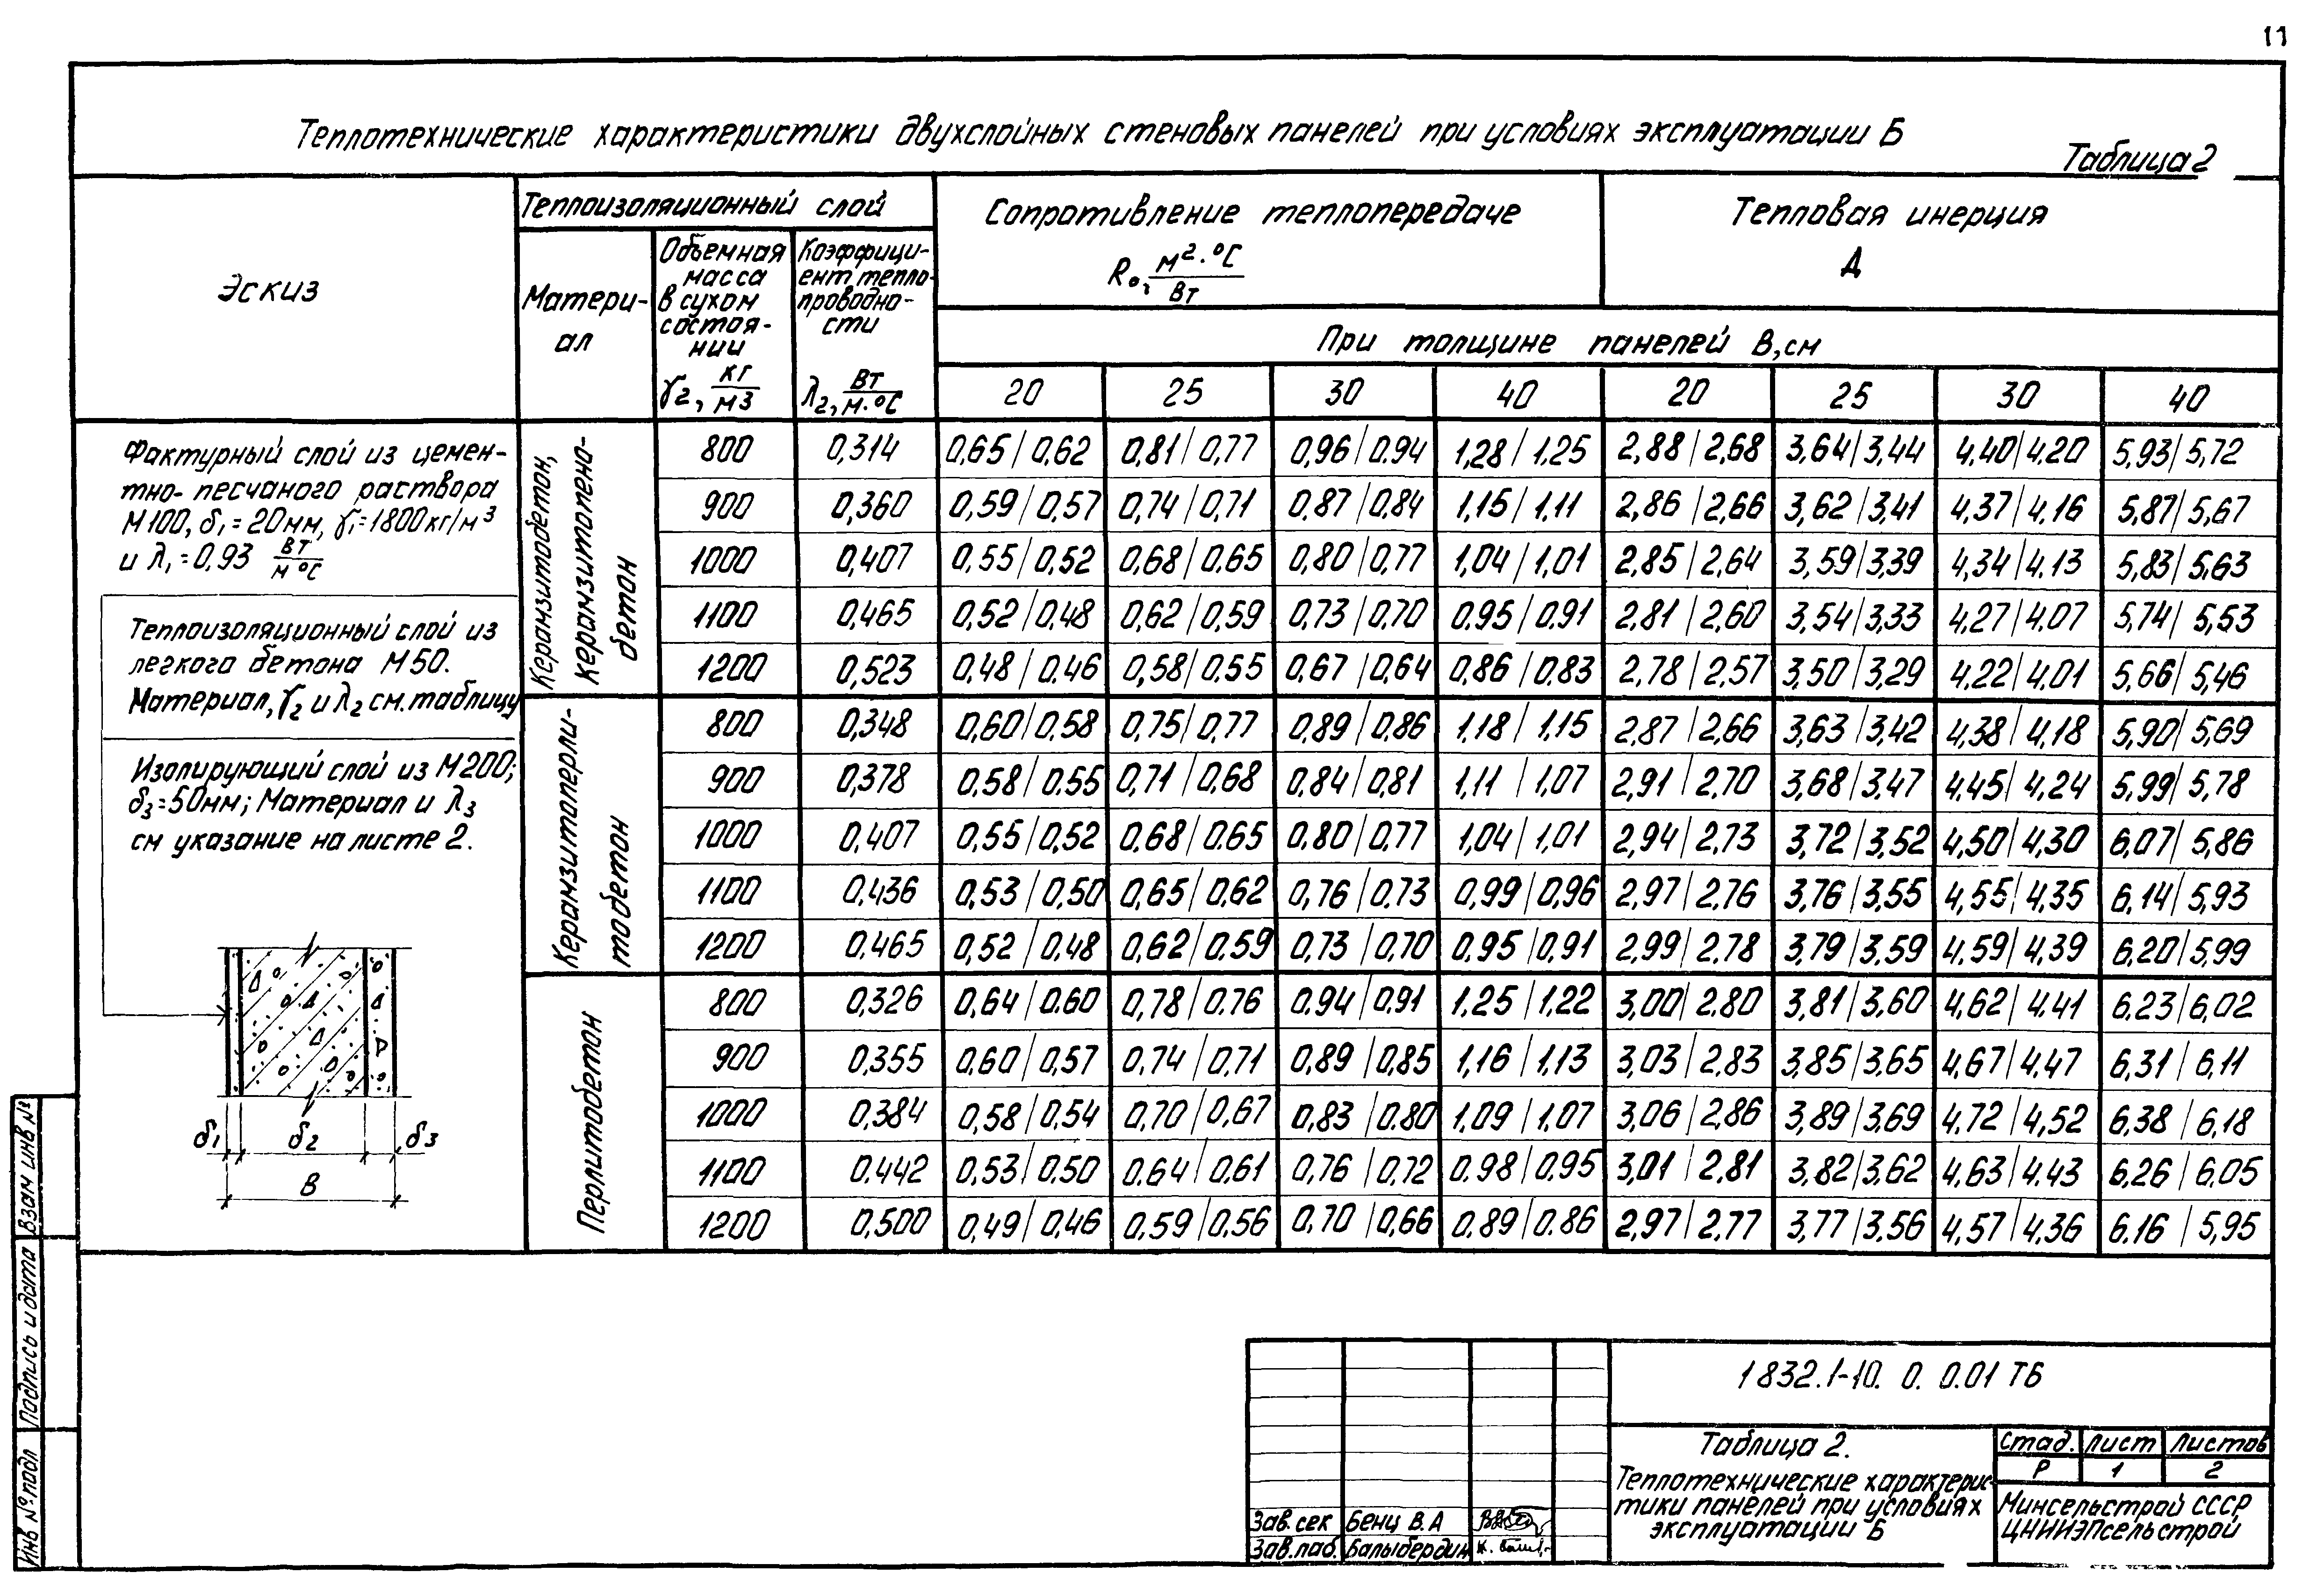 11
Теплотехнические характеристики двухслойных стеновых панелей при условиях эксплуатации Б
Таблица 2
Эскиз
Теплоизоляционный слой
Матери-
ал
Объемная
масса
в сухом
состоя-
нии
γ2, кг/м3
Коэффици-
ент тепло-
проводно-
сти
λ2, Вт/м·°С
Сопротивление теплопередаче
Rо, м2·°С/Вт
Тепловая инерция
Д
При толщине панелей В, см
20 25 30 40 20 25 30 40
Фактурный слой из цемен-
тно-песчаного раствора
М100, δ1=20мм, γ1=1800кг/м3
и λ1=0,93 Вт/м°С
Теплоизоляционный слой из
легкого бетона М50.
Материал, γ2 и λ2 см. таблицу
Изолирующий слой из М200;
δ3=50мм; Материал и λ3
см указание на листе 2.
δ1 δ2 δ3
В
Керамзитобетон,
керамзитопено-
бетон
800 0,314 0,65/0,62 0,81/0,77 0,96/0.94 1,28/1.25 2,88/2,68 3,64/3,44 4,40/4,20 5,93/5,72
900 0,360 0,59/0,57 0,74/0,71 0,87/0,84 1,15/1,11 2,86/2,66 3,62/3,41 4,37/4,16 5,87/5,67
1000 0,407 0,55/0,52 0,68/0,65 0,80/0,77 1,04/1,01 2,85/2,64 3,59/3,39 4,34/4.13 5,83/5,63
1100 0,465 0,52/0,48 0,62/0,59 0,73/0,70 0.95/0.91 2.81/2,60 3,54/3,33 4,27/4,07 5,74/5,53
1200 0,523 0,48/0,46 0,58/0.55 0,67/0,64 0,86/0.83 2,78/2,57 3,50/3,29 4.22/4,01 5,66/5,46
Керамзитоперли-
тобетон
800 0,348 0,60/0,58 0,75/0,77 0,89/0,86 1.18/1.15 2,87/2,66 3,63/3,42 4,38/4,18 5,90/5,69
900 0,378 0,58/0.55 0,71/0,68 0,84/0,81 1,11/1,07 2,91/2,70 3,68/3,47 4,45/4,24 5,99/5,78
1000 0,407 0,55/0,52 0.68/0.65 0,80/0,77 1,04/1,01 2,94/2,73 3,72/3,52 4,50/4,30 6,07/5,86
1100 0,436 0,53/0,50 0,65/0,62 0,76/0,73 0,99/0,96 2,97/2,76 3,76/3,55 4,55/4,35 6,14/5,93
1200 0,465 0,52/0,48 0,62/0.59 0,73/0,70 0.95/0,91 2,99/2,78 3,79/3,59 4,59/4,39 6,20/5,99
Перлитобетон
800 0,326 0,64/0.60 0,78/0.76 0.94/0,91 1.25/1,22 3,00/2,80 3,81/3,60 4,62/4,41 6,23/6,02
900 0,355 0,60/0,57 0,74/0,71 0,89/0,85 1,16/1,13 3,03/2,83 3,85/3,65 4,67/4,47 6,31/6,11
1000 0,384 0,58/0,54 0,70/0,67 0,83/0.80 1,09/1,07 3,06/2,86 3,89/3,69 4,72/4,52 6,38/6,18
1100 0.442 0,53/0,50 0.64/0,61 0,76/0,72 0,98/0.95 3,01/2,81 3,82/3,62 4,63/4.43 6,26/6,05
1200 0,500 0,49/0,46 0,59/0,56 0,70/0,66 0.89/0.86 2,97/2,77 3,77/3.56 4,57/4,36 6.16/5,95
1832.1-10. 0. 0.01 ТБ
Таблица 2.
Теплотехнические характерис-
тики панелей при условиях
эксплуатации Б
Стад. Лист Листов
Р 1 2
Минсельстрой СССР
ЦНИИЭПсельстрой
Зав.сек Бенц В.А
Зав.лаб. Балыбердин
Взам инв №
Подпись и дата
Инв № подл